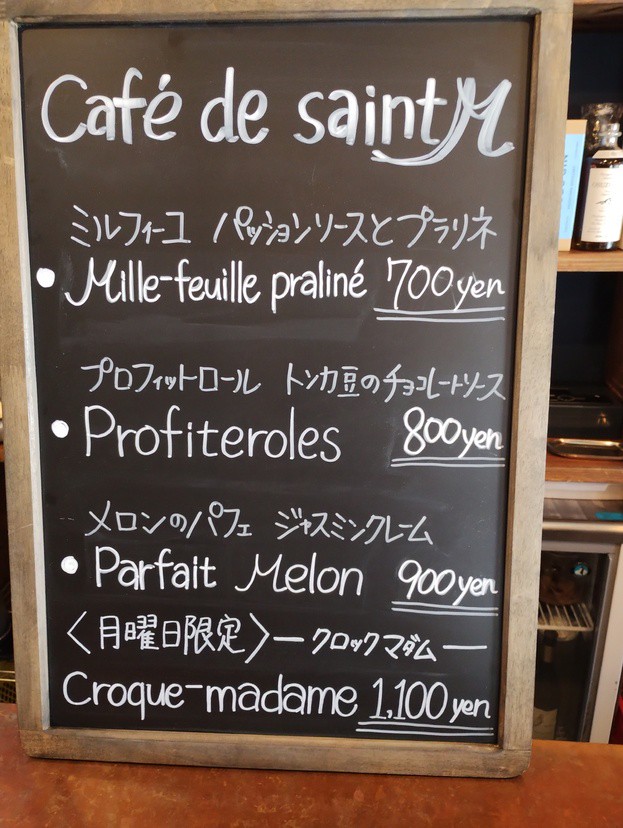 Café de saint M
ミルフィーユ パッションソースとプラリネ
Mille-feuille praliné 700yen
プロフィットロール トンカ豆のチョコレートソース
Profiteroles 800yen
メロンのパフェ ジャスミンクレーム
Parfait Melon 900yen
〈月曜日限定〉ークロックマダムー
Croque-madame 1,100yen